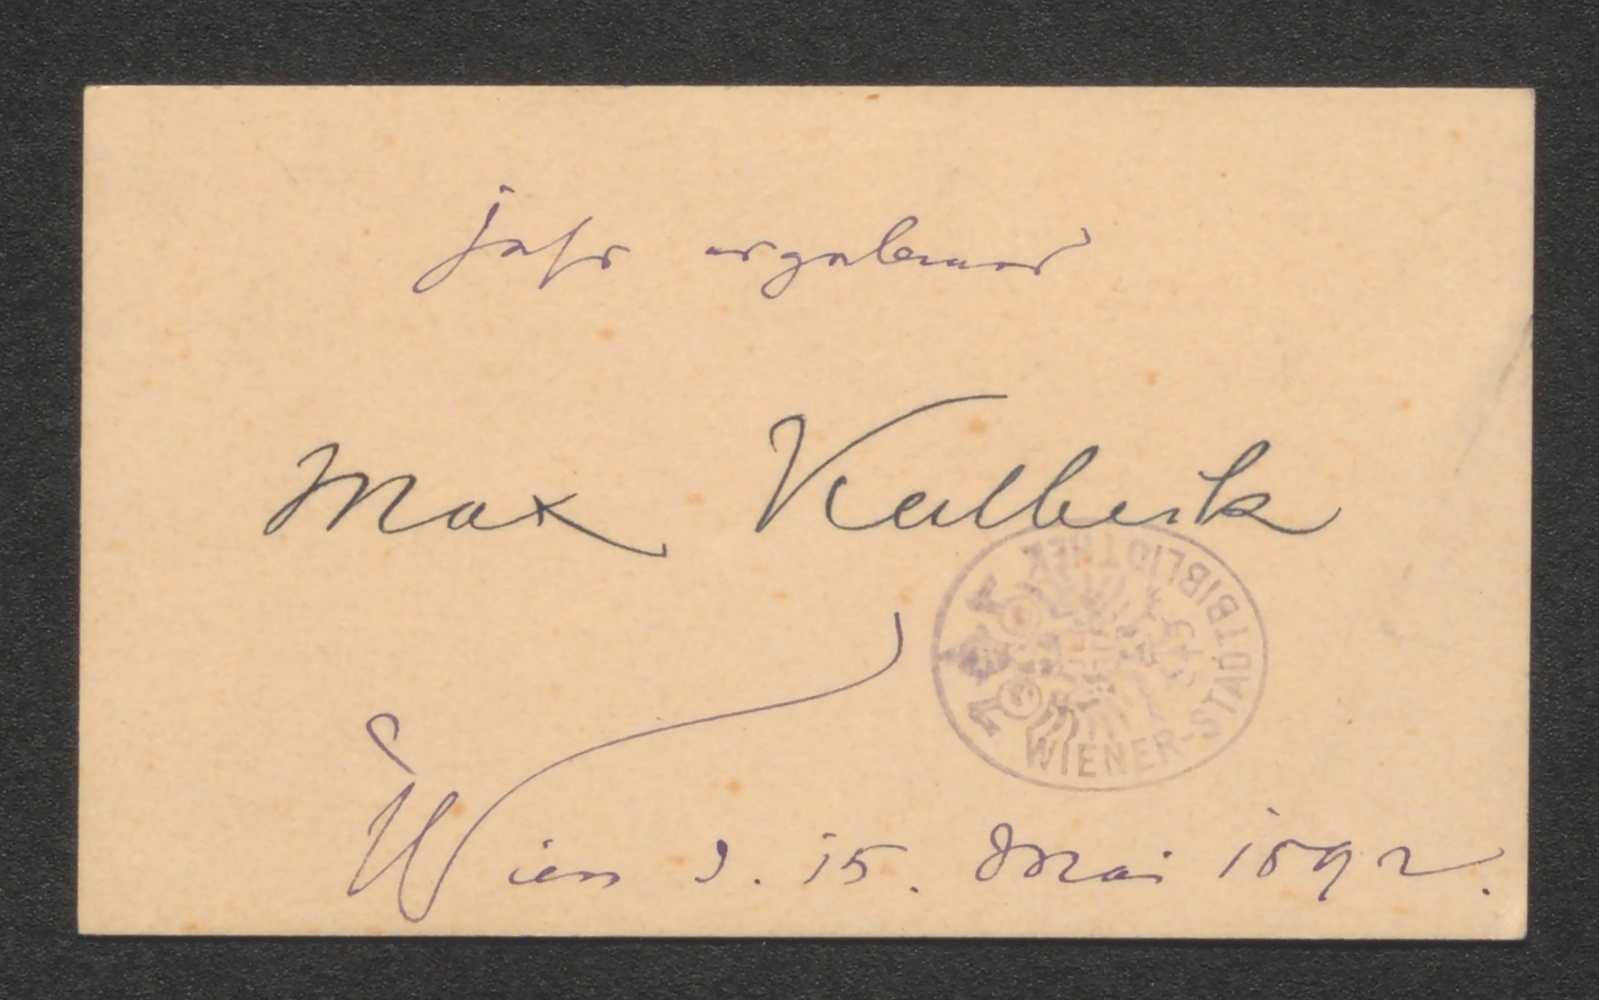 sehr ergebener
Max Kalbeck
WIENER-STADTBIBLIOTHEK
Wien d. 15. Mai 1892.